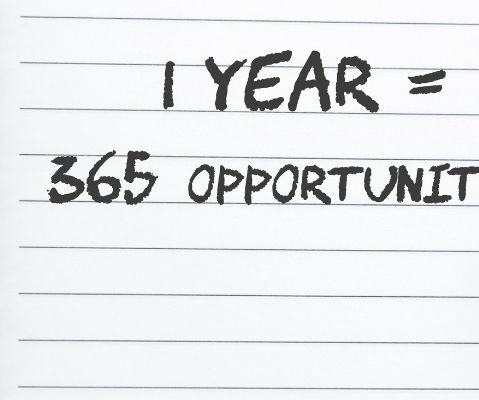 1 YEAR =
365 OPPORTUNIT